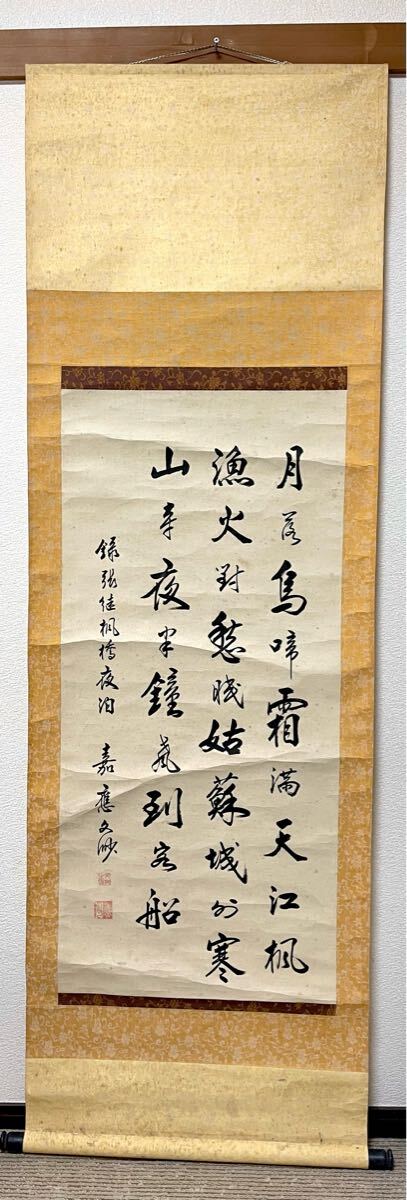 月落烏啼霜滿天江楓
漁火對愁眠姑蘇城外寒
山寺夜半鐘聲到客船
錄張継楓橋夜泊 嘉應文